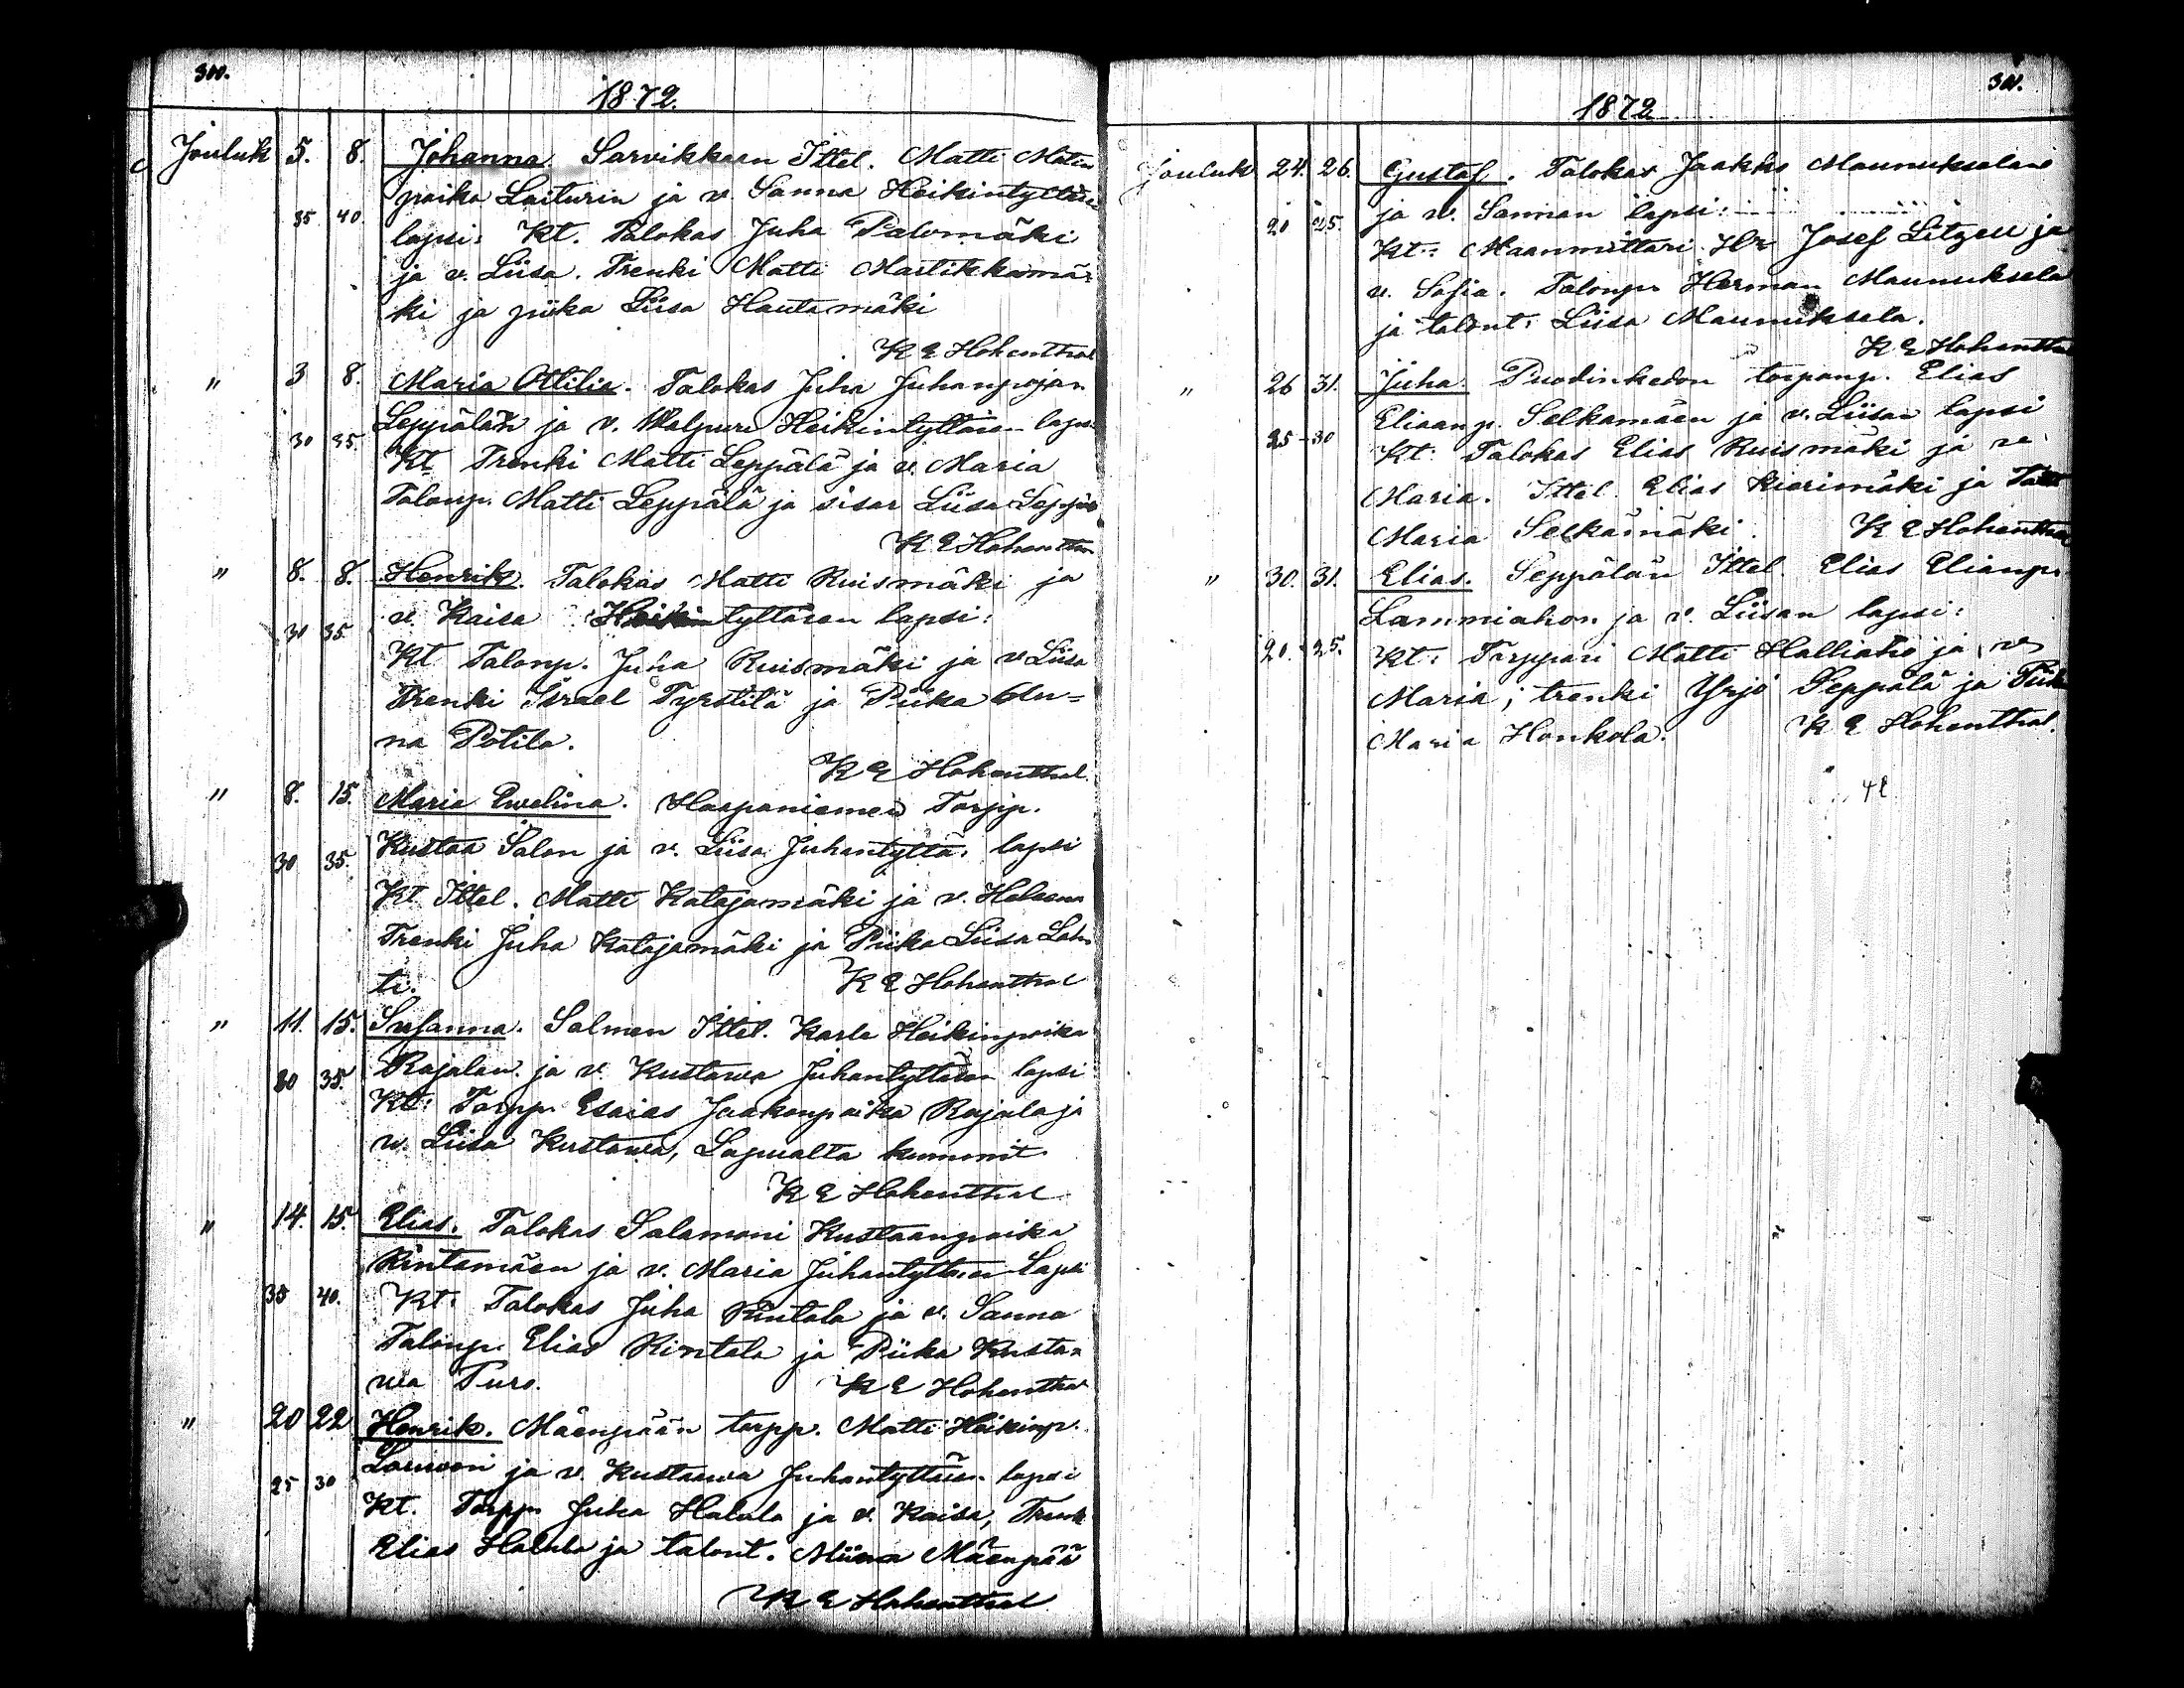 300.
1872.
Jouluk 5. 8. Johanna. Sarvikkaan Ittel. Matti Matin
poika Laiturin ja v. Sanna Heikintyttären
35 40.
lapsi: Kt. Talokas Juha Palomäki
ja v. Liisa. Trenki Matti Martikkamä-
ki ja piika Liisa Hautamäki
K E Hohenthal
" 3 8. Maria Ottilia. Talokas Juha Juhanpojan
Leppälän ja v. Walpuri Heikintyttären lapsi
30 35.
Kt Trenki Matti Leppälä ja v. Maria
Talonp. Matti Leppälä ja sisar Liisa
K E Hohenthal
" 8. 8. Henrik. Talokas Matti Ruismäki ja
v. Kaisa Heikintyttären lapsi:
30 35.
Kt Talonp. Juha Ruismäki ja v Liisa
Trenki Israel Tyrstilä ja Piika An-
na Potila.
K E Hohenthal
" 8. 15. Maria Ewelina. Haapaniemen Torpp.
Kustaa Salon ja v. Liisa Juhantyttä. lapsi
30 35.
Kt Ittel. Matti Katajamäki ja v. Helena
Trenki Juha Katajamäki ja Piika Liisa Lah-
ti. K E Hohenthal
" 11. 15. Susanna. Salmen Ittel. Karle Heikinpoika
Rajalan ja v. Kustawa Juhantyttären lapsi
30 35.
Kt: Torpp. Esaias Jaakonpoika Rajala ja
v. Liisa Kustawa, Lapualta kummit
K E Hohenthal
" 14. 15. Elias. Talokas Salamoni Kustaanpoika
Rintamäen ja v. Maria Juhantyttären Lapsi
35 40.
Kt: Talokas Juha Rintala ja v. Sanna
Talonp. Elias Rintala ja Piika Kusta-
wa Puro. K E Hohenthal
" 20 22 Henrik. Mäenpään torpp. Matti Heikinp.
ja v. Kustaawa Juhantyttären lapsi
25 30
Kt. Torpp. Juha Halula ja v. Kaisa, Trenk
Elias Halula ja talont. Miina Mäenpää
K E Hohenthal
301.
1872
Jouluk 24. 26. Gustaf. Talokas Jaakko Maunukselan
ja v. Sannan lapsi:
20 25.
Kt: Maanmittari Hr Josef Litzen ja
v. Sofia. Talonp. Herman Maunuksela
ja talont: Liisa Maunuksela.
K E Hohenthal
" 26 31. Juha. Puodinkedon torpanp. Elias
Eliaanp. Selkämäen ja v. Liisan lapsi
25 - 30
Kt: Talokas Elias Ruismäki ja v
Maria. Ittel. Elias Kiorimäki ja
Maria Selkämäki. K E Hohenthal
" 30. 31. Elias. Seppälän Ittel. Elias Elianp.
Lammiahon ja v. Liisan lapsi:
20. 25.
Kt: Torppari Matti Halliaho ja v
Maria; trenki Yrjö Seppälä ja Piik
Maria Honkola. K E Hohenthal.